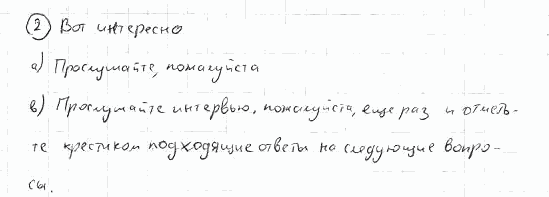 ② Вот интересно
а) Прослушайте, пожалуйста
в) Прослушайте интервью, пожалуйста, еще раз и отметь-
те крестиком подходящие ответы на следующие вопро-
сы.